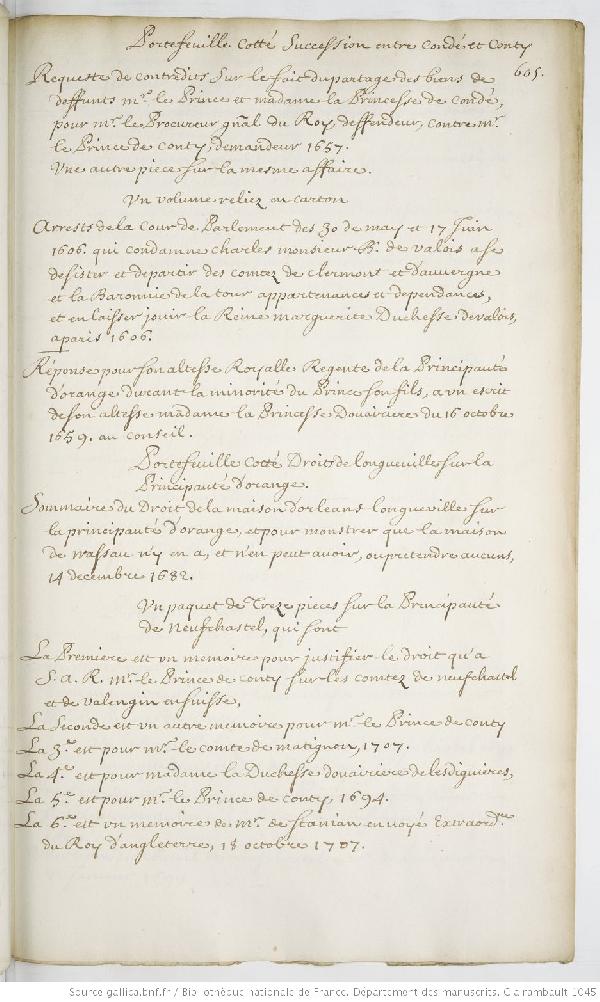 Portefeuille Cotté Succession entre Condé et Conty
605.
Requeste de contredits Sur le fait du partage des biens de
deffunts mr. le Prince et madame la Princesse de Condé,
pour mr. le Procureur gnãl du Roy, deffendeur, contre mr.
le Prince de Conty, demandeur 1657.
Une autre piece sur la mesme affaire.
Un volume reliez en carton
Arrests de la Cour de Parlement des 30 de may et 17 Juin
1606. qui condamne Charles monsieur de valois a se
desister et departir des comtez de clermont et d'auvergne
et la Baronnie de la tour appartenances et dependances,
et en laisser jouir la Reine marguerite Duchesse de valois,
a paris 1606.
Réponse pour son altesse Royalle Regente de la Principauté
d'orange durant la minorité du Prince son fils, a un escrit
de son altesse madame la Princesse Douairiere du 16 octobre
1659. au Conseil.
Portefuille Cotté Droits de longueville sur la
Principauté d'orange.
Sommaire du Droit de la maison d'orleans longueville sur
la principauté d'orange, et pour monstrer que la maison
de nassau n'y en a, et n'en peut avoir, ou pretendre aucuns,
14 decembre 1682.
Un paquet de Treze pieces sur la Principauté
de Neufchastel, qui sont
La Premiere est un memoire pour justifier le droit qu'a
S. A. R. mr. le Prince de conty sur les comtez de neufchastel
et de valengin en suisse,
La Seconde est un autre memoire pour mr. le Prince de conty
La 3e. est pour mr. le comte de matignon, 1707.
La 4e. est pour madame la Duchesse douairiere de lesdiguieres,
La 5e. est pour mr. le Prince de conty, 1694.
La 6e. est un memoire de mr. de stanian envoyé Extraordre
du Roy d'angleterre, 18 octobre 1707.
Source gallica.bnf.fr / Bibliothèque nationale de France. Département des manuscrits. Clairambault 1045